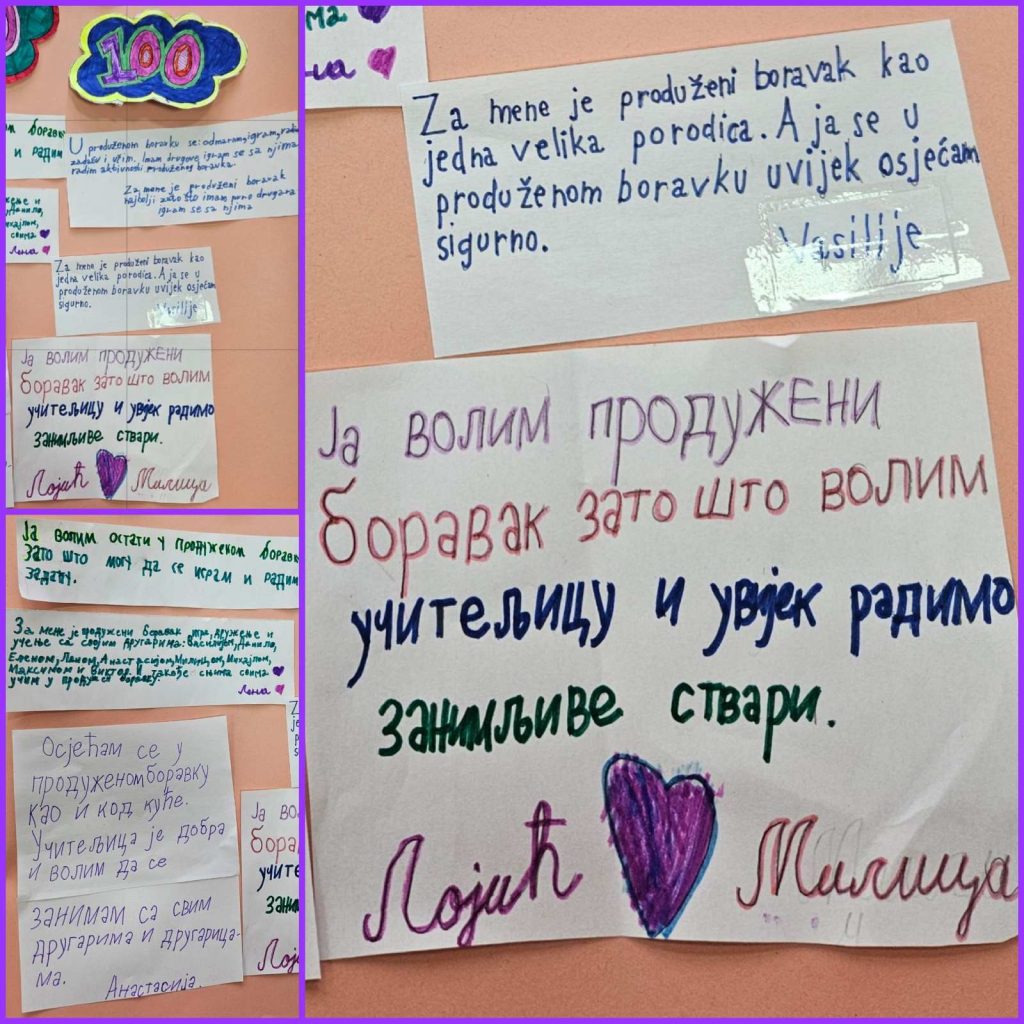 100
U produženom boravku se: odmaram, igram, radim
zadaću i užim. Imam drugove, igram se sa njima
radim aktivnosti produženog boravka.
Za mene je produženi boravak
najbolji zato što imam puno drugara
igram se sa njima
Za mene je produženi boravak kao
jedna velika porodica. A ja se u
produženom boravku uvijek osjećam
sigurno.
Vasilije
Ја волим продужени
боравак зато што волим
учитељицу и увјек радимо
занимљиве ствари.
Лојић Милица
Ја волим остати у продуженом
зато што могу да се играм и радим
задаћу.
За мене је продужени боравак игра, дружење и
учење са својим другарима: Василијом, Данило,
Еленом, Ланом, Анастасијом, Милицом, Михајлом,
Максимом и Виктор. И такође снима свима
учим у боравку.
Лена
Осјећам се у
продуженом боравку
као и код куће.
Учитељица је добра
и волим да се
занимам са свим
другарима и другарица-
ма.
Анастасија.
Za mene je produženi boravak kao
jedna velika porodica. A ja se u
produženom boravku uvijek osjećam
sigurno.
Vasilije
Ја волим продужени
боравак зато што волим
учитељицу и увјек радимо
занимљиве ствари.
Лојић Милица